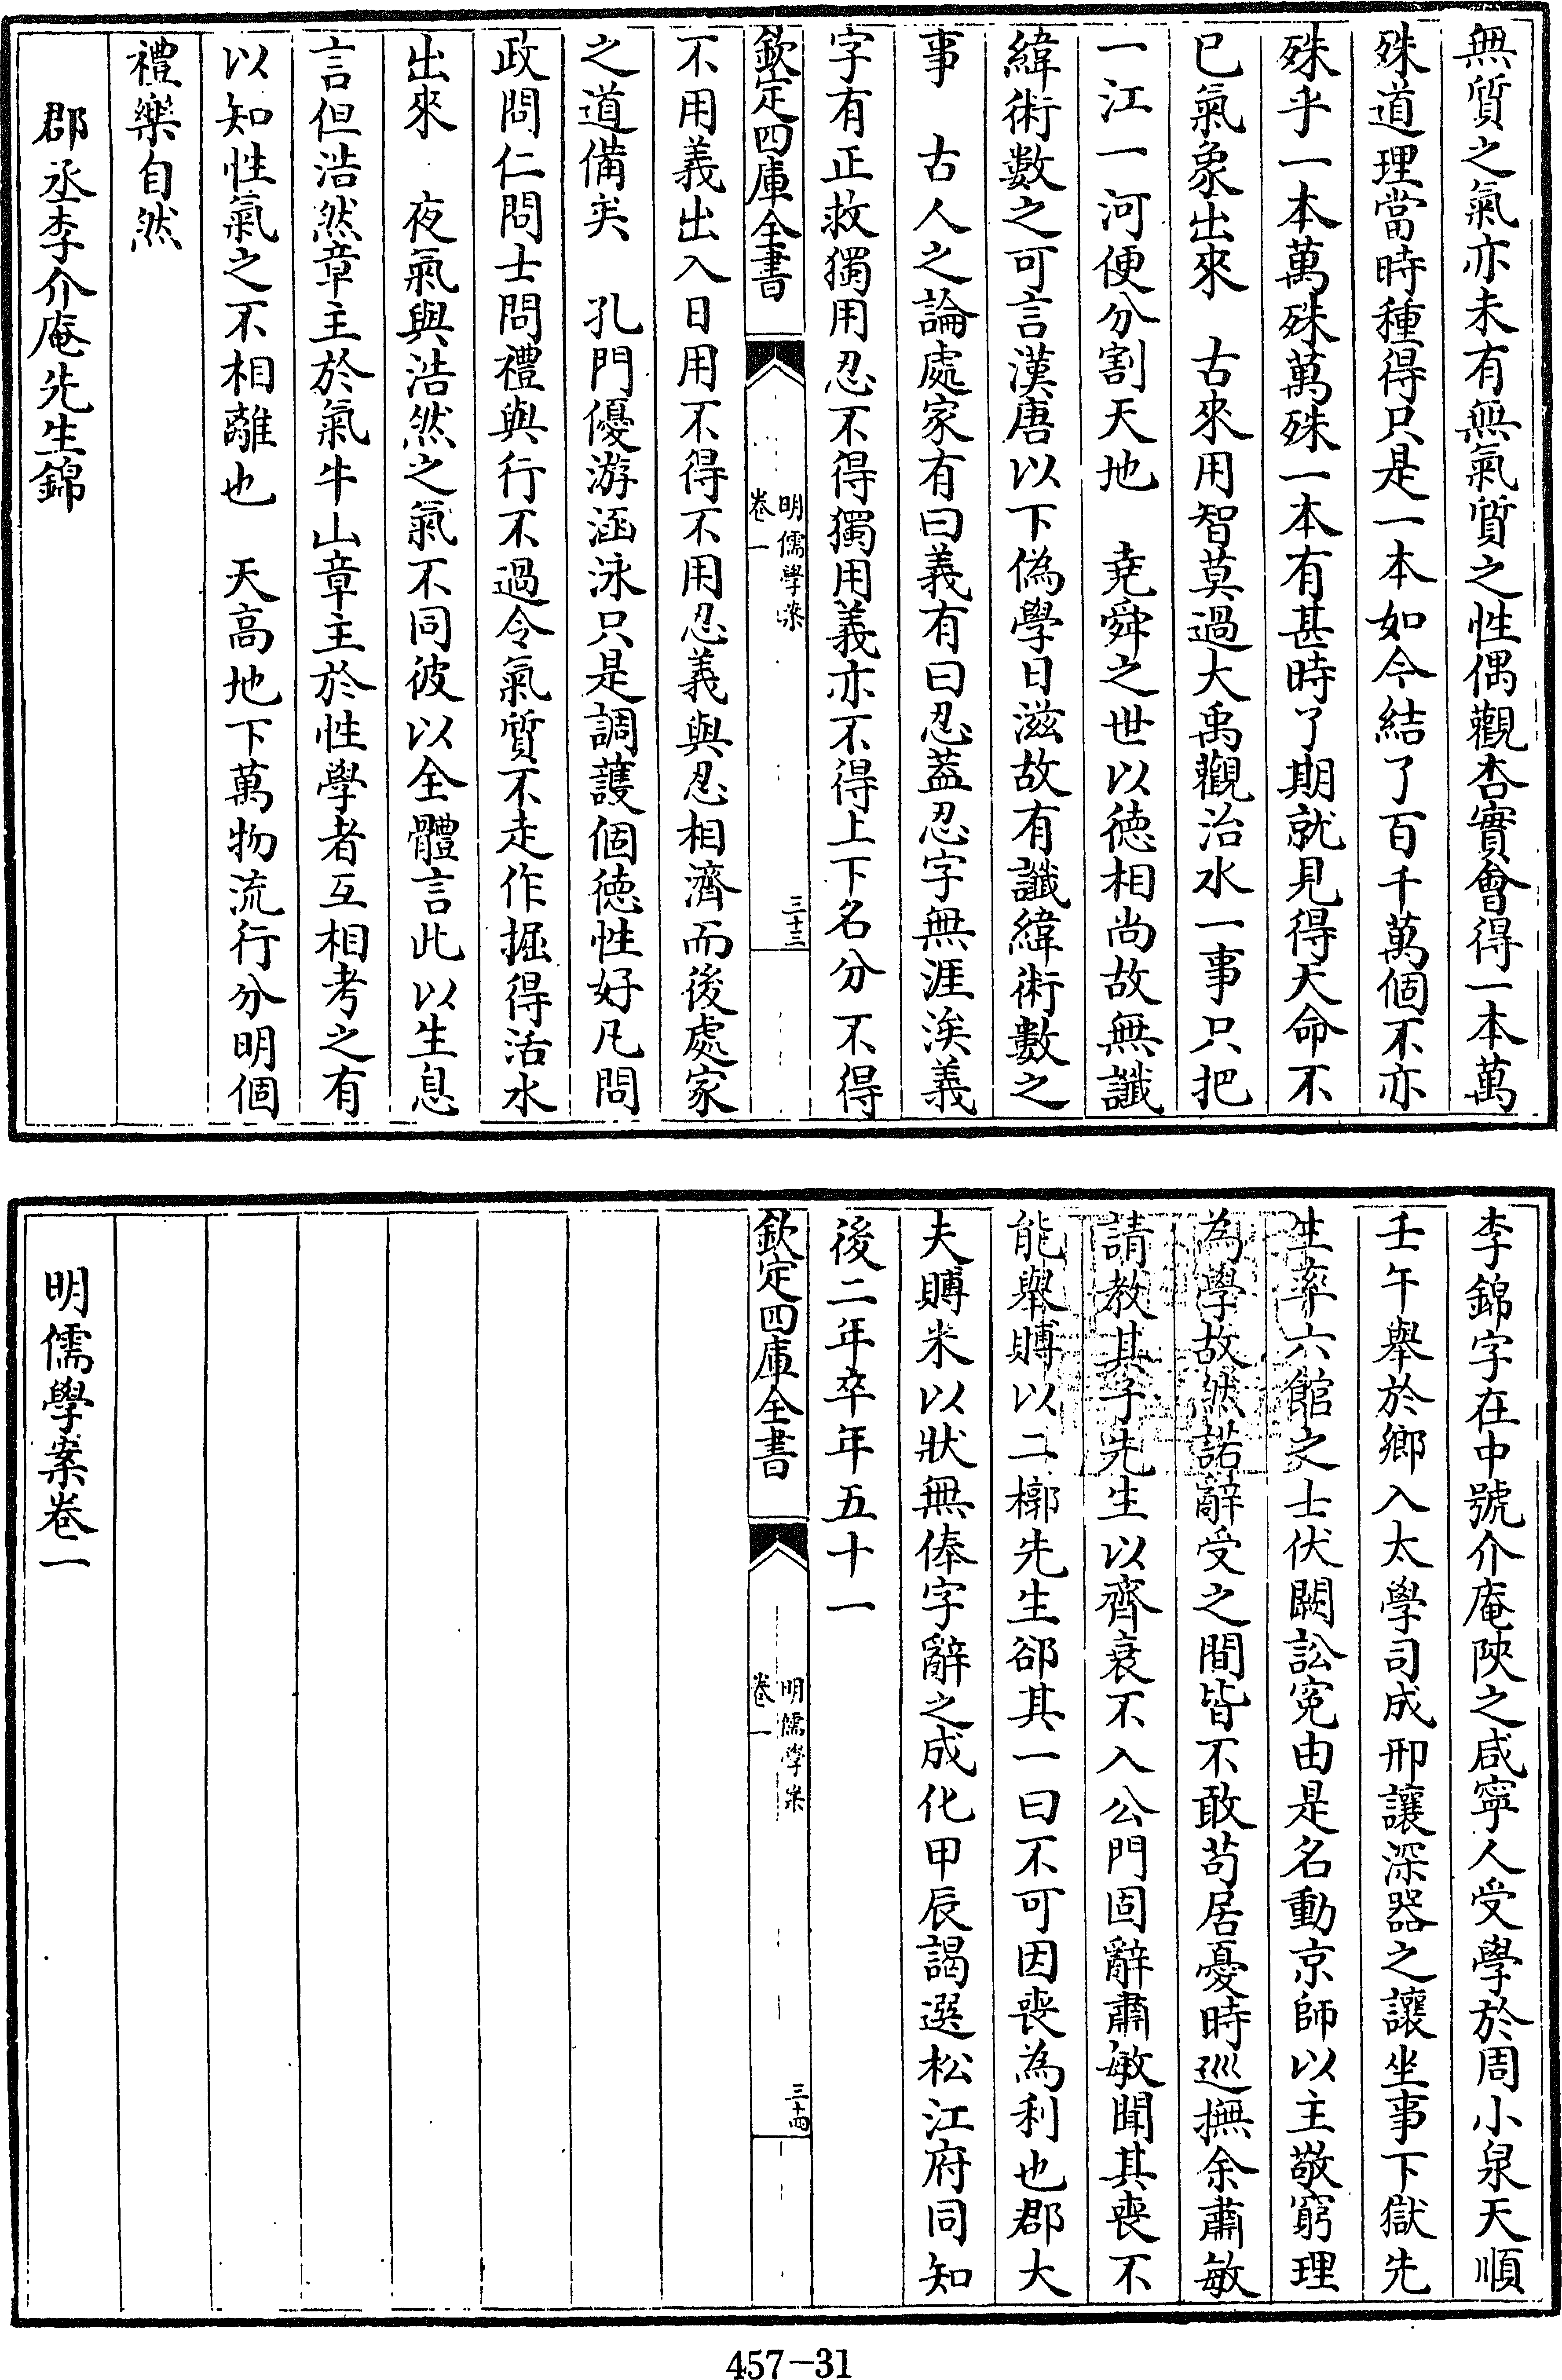 無質之氣亦未有無氣質之性偶觀杏實會得一本萬
殊道理當時種得只是一本如今結了百千萬個不亦
殊乎一本萬殊萬殊一本有甚時了期就見得天命不
已氣象出來　古來用智莫過大禹觀治水一事只把
一江一河便分割天地　堯舜之世以德相尚故無讖
緯術數之可言漢唐以下偽學日滋故有讖緯術數之
事　古人之論處家有曰義有曰忍蓋忍字無涯涘義
字有正救獨用忍不得獨用義亦不得上下名分不得
欽定四庫全書
明儒學案
卷一
三十三
不用義出入日用不得不用忍義與忍相濟而後處家
之道備矣　孔門優游涵泳只是調護個德性好凡問
政問仁問士問禮與行不過令氣質不走作掘得活水
出來　夜氣與浩然之氣不同彼以全體言此以生息
言但浩然章主於氣牛山章主於性學者互相考之有
以知性氣之不相離也　天高地下萬物流行分明個
禮樂自然
郡丞李介庵先生錦
李錦字在中號介庵陝之咸寧人受學於周小泉天順
壬午舉於鄉入太學司成邢讓深器之讓坐事下獄先
生率六館之士伏闕訟冤由是名動京師以主敬窮理
為學故然諾辭受之間皆不敢苟居憂時巡撫余肅敏
請教其子先生以齊衰不入公門固辭肅敏聞其喪不
能舉賻以二槨先生卻其一曰不可因喪為利也郡大
夫賻米以狀無俸字辭之成化甲辰謁選松江府同知
後二年卒年五十一
欽定四庫全書
明儒學案
卷一
三十四
明儒學案卷一
457-31